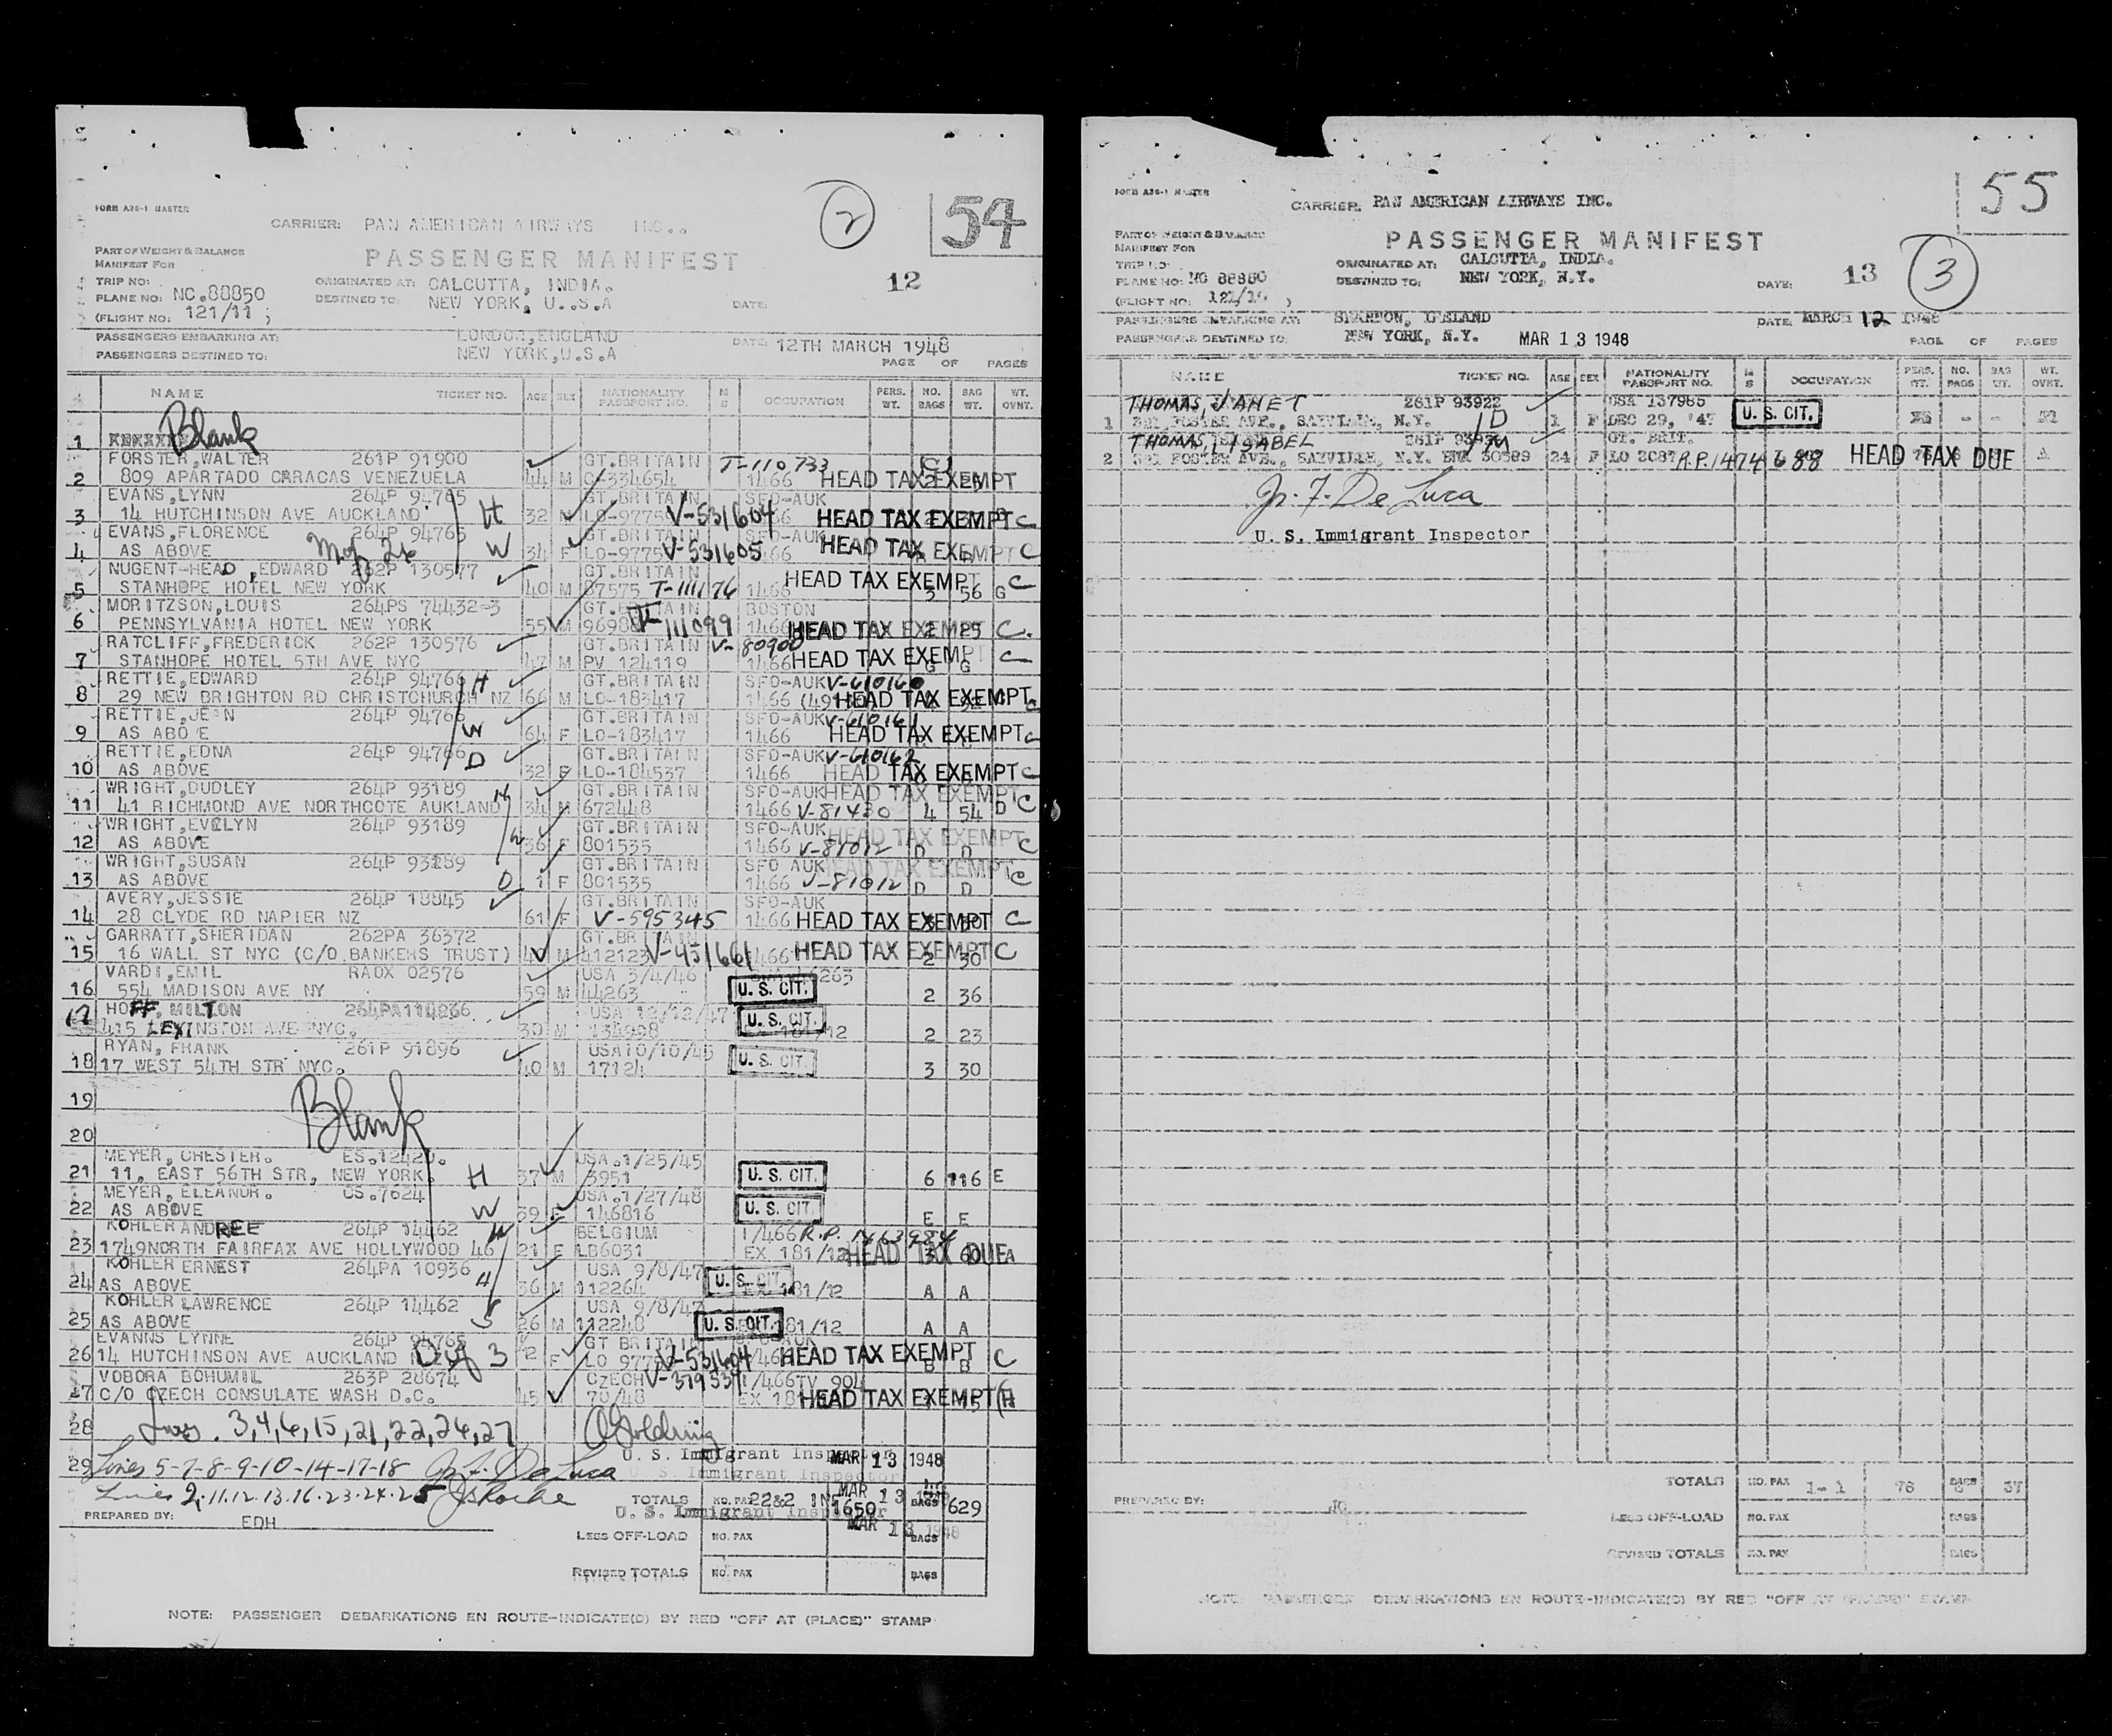 54
2
FORM A36-1 MASTER
CARRIER: PAN AMERICAN AIRWAYS INC..
PART OF WEIGHT & BALANCE
MANIFEST FOR
PASSENGER MANIFEST
12
TRIP NO:
PLANE NO: NC.88850
(FLIGHT NO: 121/11 )
ORIGINATED AT: CALCUTTA, INDIA.
DESTINED TO: NEW YORK, U..S.A
DATE:
PASSENGERS EMBARKING AT: LONDON,ENGLAND
PASSENGERS DESTINED TO: NEW YORK,U.S.A
DATE: 12TH MARCH 1948
PAGE OF PAGES
NAME TICKET NO. AGE SEX NATIONALITY PASSPORT NO. M S OCCUPATION PERS. WT. NO. BAGS BAG WT. WT. OVNT.
1 Blank
FORSTER,WALTER 261P 91900 GT.BRITAIN T-110,733
2 809 APARTADO CARACAS VENEZUELA 44 M 334654 1466 HEAD TAX EXEMPT
EVANS,LYNN 264P 94765 GT.BRITAIN SFO-AUK
3 14 HUTCHINSON AVE AUCKLAND. H 32 M LO-9775 V-531604 HEAD TAX EXEMPT C
EVANS,FLORENCE 264P 94765 GT.BRITAIN SFO-AUK
4 AS ABOVE M of 26 W 34 F LO-9775 V-531605 1466 HEAD TAX EXEMPT C
NUGENT-HEAD ,EDWARD 262P 130577 GT.BRITAIN
5 STANHOPE HOTEL NEW YORK 40 M 87575 T-111176 1466 HEAD TAX EXEMPT 56 G C
MORITZSON,LOUIS 264PS 74432-3 GT.BRITAIN BOSTON
6 PENNSYLVANIA HOTEL NEW YORK 55 M T-111099 1466 HEAD TAX EXEMPT 2 25 C.
RATCLIFF,FREDERICK 262P 130576 GT.BRITAIN V-80900
7 STANHOPE HOTEL 5TH AVE NYC 47 M PV 124119 1466 HEAD TAX EXEMPT G G C
RETTIE,EDWARD 264P 94766 H GT.BRITAIN SFO-AUK V-610160
8 29 NEW BRIGHTON RD CHRISTCHURCH NZ 66 M LO-183417 1466 HEAD TAX EXEMPT C
RETTIE,JEAN 264P 94766 GT.BRITAIN SFO-AUK V-610161
9 AS ABOVE W 64 F LO-183417 1466 HEAD TAX EXEMPT C
RETTIE,EDNA 264P 94766 GT.BRITAIN SFO-AUK V-610162
10 AS ABOVE D 32 F LO-184537 1466 HEAD TAX EXEMPT C
WRIGHT,DUDLEY 264P 93189 GT.BRITAIN SFO-AUK HEAD TAX EXEMPT
11 41 RICHMOND AVE NORTHCOTE AUKLAND H 34 M 672448 1466 V-81430 4 54 D C
WRIGHT,EVELYN 264P 93189 GT.BRITAIN SFO-AUK HEAD TAX EXEMPT
12 AS ABOVE W 36 F 801535 1466 V-81012 D D C
WRIGHT,SUSAN 264P 93189 GT.BRITAIN SFO AUK HEAD TAX EXEMPT
13 AS ABOVE D 1 F 801535 1466 V-81012 D D C
AVERY,JESSIE 264P 18845 GT.BRITAIN SFO-AUK
14 28 CLYDE RD NAPIER NZ 61 F V-595345 1466 HEAD TAX EXEMPT C
GARRATT,SHERIDAN 262PA 36372 GT.BRITAIN
15 16 WALL ST NYC (C/O BANKERS TRUST) M 412123 V-451661 1466 HEAD TAX EXEMPT 2 30 C
VARDI,EMIL RAOX 02576 USA 3/4/46
16 554 MADISON AVE NY 59 M 44263 U. S. CIT. 2 36
HOFF, MILTON 264PA114266 USA 12/12/47
17 415 LEXINGTON AVE NYC. 30 M 134908 U. S. CIT. 2 23
RYAN, FRANK 261P 91896 USA10/10/45
18 17 WEST 54TH STR NYC. 40 M 17124 U. S. CIT. 3 30
19 Blank
20
MEYER, CHESTER. ES.12420. USA.1/25/45
21 11, EAST 56TH STR, NEW YORK. H 37 M 3951 U. S. CIT. 6 116 E
MEYER, ELEANOR. CS.7624 USA.1/27/48
22 AS ABOVE W 39 F 146816 U. S. CIT. E E
KOHLER ANDREE 264P 14462 W BELGIUM 1/466 R.P. 1463984
23 1749NORTH FAIRFAX AVE HOLLYWOOD 46 21 F LB6031 EX 181/12 HEAD TAX DUE A
KOHLER ERNEST 264PA 10936 USA 9/8/47
24 AS ABOVE H 36 M 112264 U. S. CIT. 181/12 A A
KOHLER LAWRENCE 264P 14462 USA 9/8/47
25 AS ABOVE S 26 M 112248 U. S. CIT. 181/12 A A
EVANNS LYNNE 264P 94765 GT BRITAIN
26 14 HUTCHINSON AVE AUCKLAND D of 3 F LO V-531604 HEAD TAX EXEMPT B B C
VOBORA BOHUMIL 263P 28674 CZECH V-379539 1/466TV 904
27 C/O CZECH CONSULATE WASH D.C. 45 70/48 EX HEAD TAX EXEMPT
28 Lines. 3,4,6,15,21,22,26,27
U. S. Immigrant Inspector MAR 13 1948
29 Lines 5-7-8-9-10-14-17-18 Jr. F. De Luca
U. S. Immigrant Inspector
Lines 2.11.12.13.16.23.24.25 JS Roche
TOTALS NO. PAX 22&2 INF 1650 BAGS 629
MAR 13 1948
U. S. Immigrant Inspector
MAR 13 1948
PREPARED BY: EDH
LESS OFF-LOAD NO. PAX BAGS
REVISED TOTALS NO. PAX BAGS
NOTE: PASSENGER DEBARKATIONS EN ROUTE-INDICATE(D) BY RED "OFF AT (PLACE)" STAMP
55
FORM A36-1 MASTER
CARRIER: PAN AMERICAN AIRWAYS INC.
PART OF WEIGHT & BALANCE
MANIFEST FOR
PASSENGER MANIFEST
13
3
TRIP NO:
PLANE NO: NC 88850
(FLIGHT NO: 121/10 )
ORIGINATED AT: CALCUTTA, INDIA.
DESTINED TO: NEW YORK, N.Y.
DATE:
PASSENGERS EMBARKING AT: SHANNON, IRELAND
DATE: MARCH 12 1948
PASSENGERS DESTINED TO: NEW YORK, N.Y. MAR 13 1948
PAGE OF PAGES
NAME TICKET NO. AGE SEX NATIONALITY PASSPORT NO. M S OCCUPATION PERS. WT. NO. BAGS BAG WT. WT. OVNT.
THOMAS, JANET 261P 93922 USA 137985
1 FOSTER AVE., SAYVILLE, N.Y. D 1 F DEC 29, '47 U. S. CIT.
THOMAS, ISABEL M GT. BRIT.
2 FOSTER AVE., SAYVILLE, N.Y. 24 F R.P. 1474688 HEAD TAX DUE
Jr. F. De Luca
U. S. Immigrant Inspector
TOTALS NO. PAX 1- 1 76 BAGS 37
PREPARED BY:
LESS OFF-LOAD NO. PAX BAGS
REVISED TOTALS NO. PAX BAGS
NOTE: PASSENGER DEBARKATIONS EN ROUTE-INDICATE(D) BY RED "OFF AT (PLACE)" STAMP